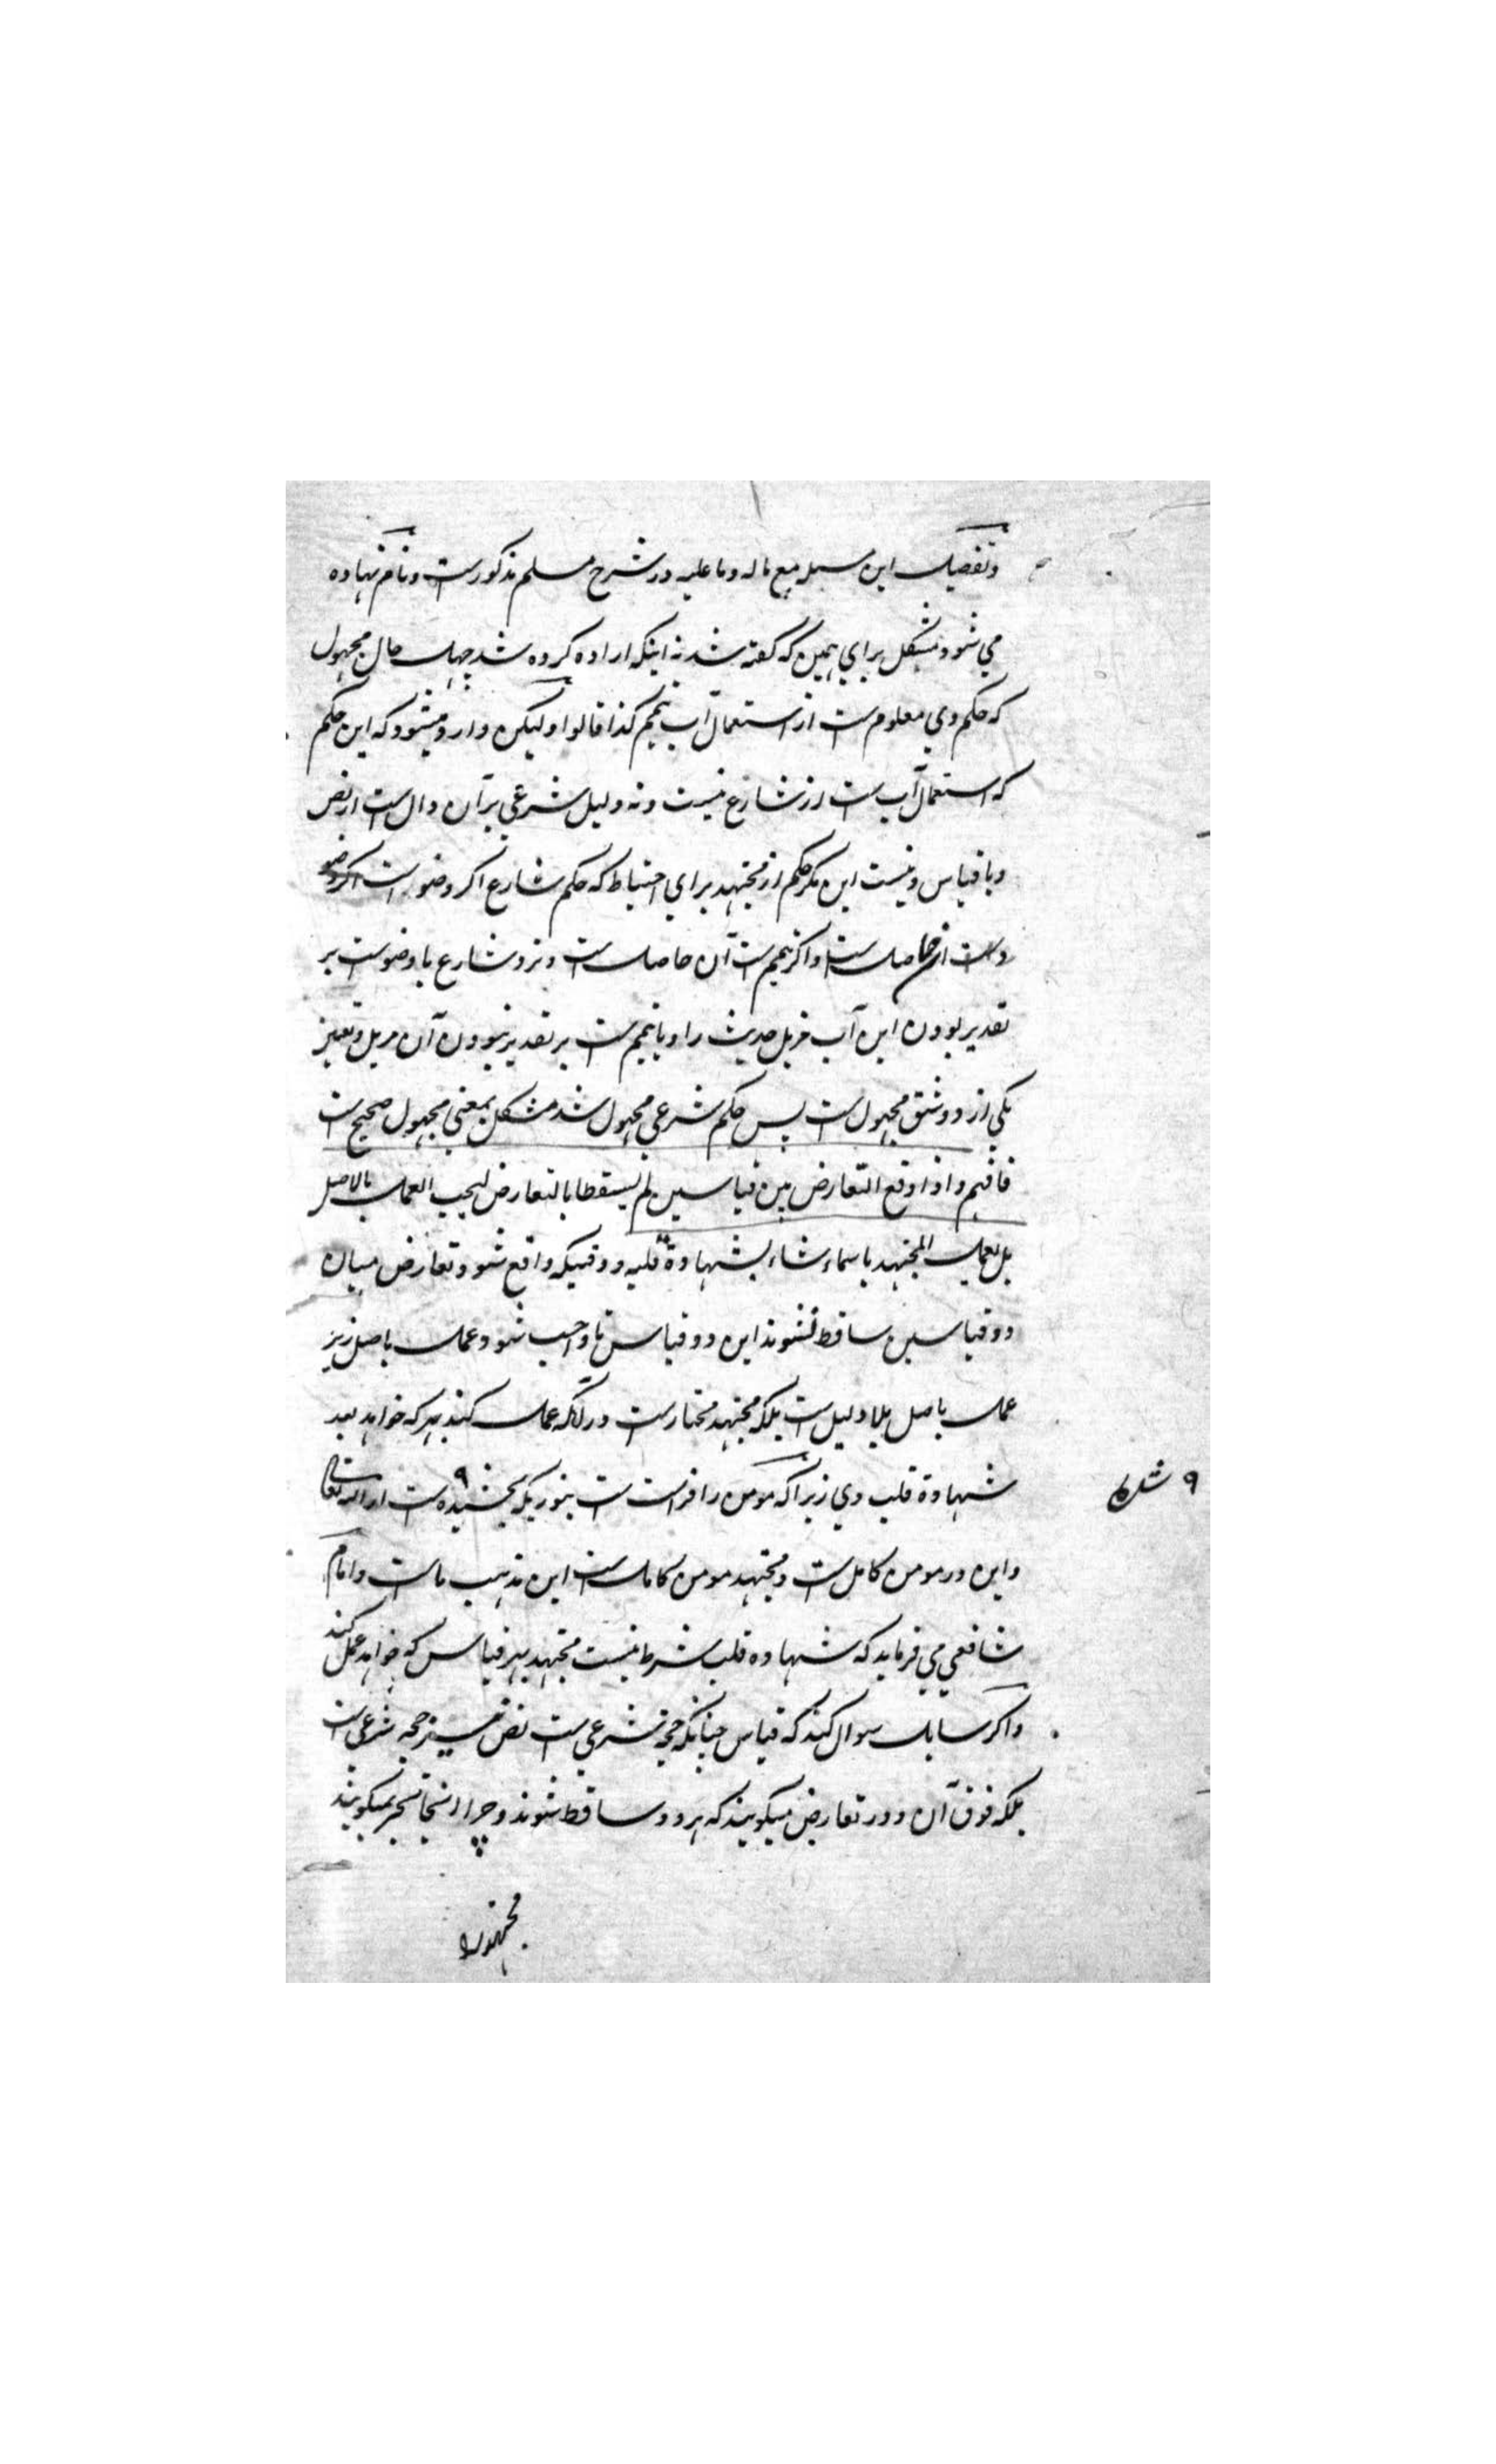 وتفصیل این مسئله مع ماله وما علیه در شرح مسلم مذکورست ونام نهاده
می شود مشکل برای همین که گفته شد نه اینکه اراده کرده شد جهل حال مجهول
که حکم وی معلوم ست از استعمال آب تیمم کذا قالوا ولیکن وارد میشود که این حکم
که استعمال آب ست از شارع نیست ونه دلیل شرعی بر آن دال ست از نص
ویا قیاس ونیست این مگر حکم از مجتهد برای احتیاط که حکم شارع اگر وضو ست
حاصل ست واگر تیمم ست آن حاصل ست ونزد شارع یا وضوست بر
تقدیر بودن این آب مزیل حدث را ویا تیمم ست بر تقدیر نبودن آن مزیل وتعین
یکی از دو شق مجهول ست پس حکم شرعی مجهول شد مشکل بمعنی مجهول صحیح ست
فافهم واذا وقع التعارض بین قیاسین لم یسقطا بالتعارض لیجب العمل بالاصل
بل یعمل المجتهد بایهما شاء بشهادة قلبه ووقتیکه واقع شود تعارض میان
دو قیاسین ساقط نشوند این دو قیاس تا واجب شود عمل باصل زیرا
عمل باصل بلا دلیل ست بلکه مجتهد مختارست در آنکه عمل کند بهر که خواهد بعد
شهادة قلب وی زیرا که مومن را فراست ست بنوریکه بخشیده ست او را الله تعالی
واین در مومن کامل ست ومجتهد مومن کامل ست این مذهب ماست وامام
شافعی می فرماید که شهاده قلب شرط نیست مجتهد بهر قیاس که خواهد عمل کند
واگر سایل سوال کند که قیاس چنانکه حجة شرعی ست نص نیز حجه شرعی ست
بلکه فوق آن ودر تعارض میگویند که هر دو ساقط شوند وچرا اینجا تخییر نمیگویند
مجتهد را